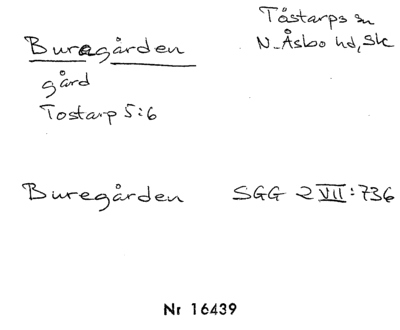 Buragården
Tåstarps sn
N. Åsbo hd, Sk
gård
Tostarp 5:6
Buregården SGG 2 VII:736
Nr 16439